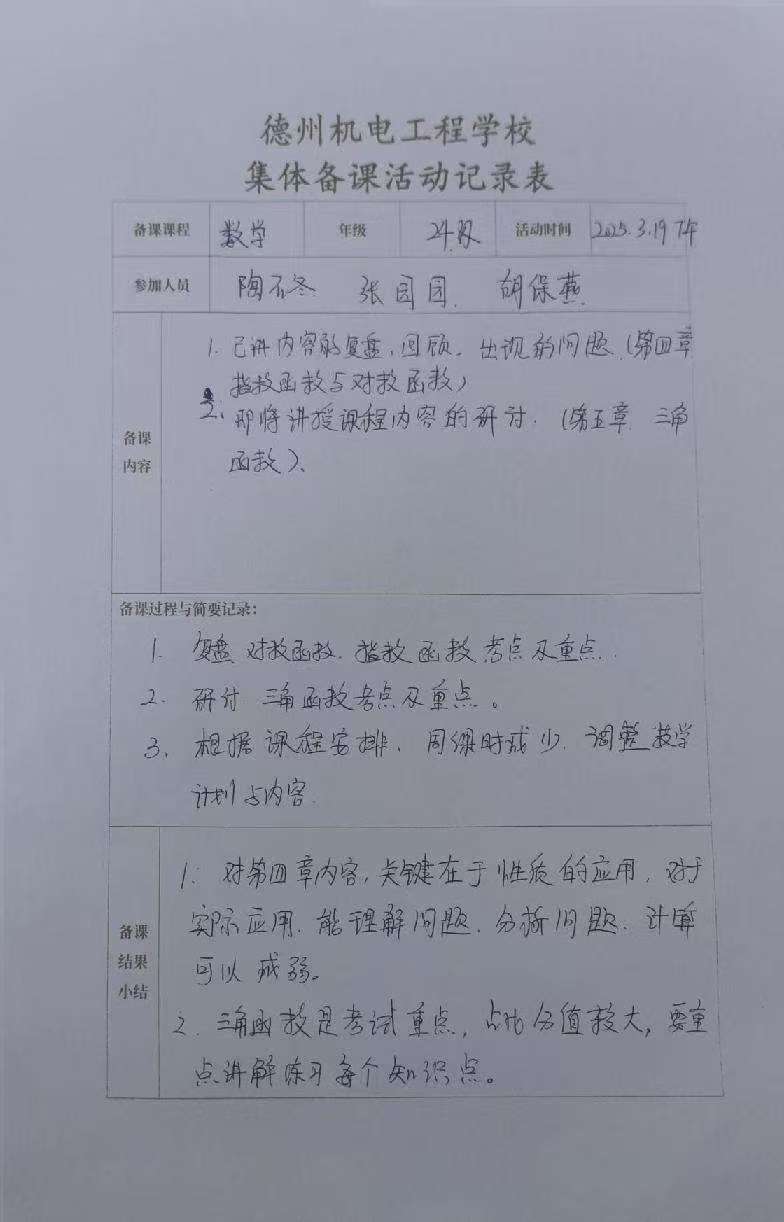 德州机电工程学校
集体备课活动记录表
备课课程 数学 年级 24级 活动时间 2025.3.19 下午
参加人员 陶 冬 张园园 胡保燕
备课内容
1. 已讲内容的复盘,回顾,出现的问题(第四章
指数函数与对数函数)
2. 即将讲授课程内容的研讨.(第五章 三角
函数)、
备课过程与简要记录:
1. 复盘 对数函数、指数函数考点及重点.
2. 研讨 三角函数考点及重点。
3. 根据课程安排、周课时减少、调整教学
计划与内容.
备课结果小结
1. 对第四章内容,关键在于性质的应用,对于
实际应用.能理解问题.分析问题.计算
可以减弱。
2. 三角函数是考试重点,占比分值较大,要重
点讲解练习每个知识点。